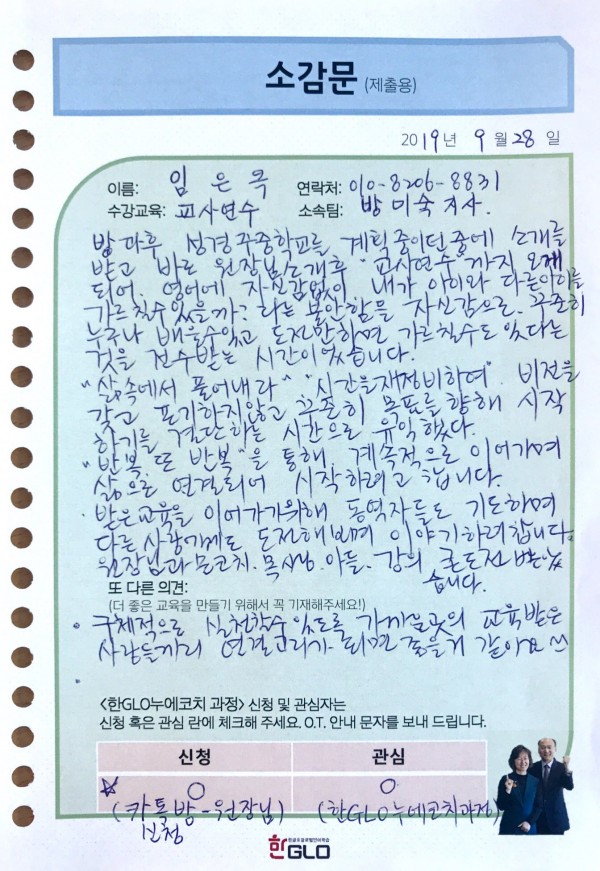 소감문 (제출용)
2019년 9월 28일
이름: 임은옥 연락처: 010-8206-8831
수강교육: 교사연수 소속팀: 방미숙 지사.
방과후 성경주중학교를 계획중이던 중에 소개를
받고 바로 원장님소개후 "교사연수"까지 오게
되어 영어에 자신감없이 내가 아이와 다른아이들
가르칠수있을까? 라는 불안함을 자신감으로. 꾸준히
누구나 배울수있고 도전만하면 가르칠수도 있다는
것을 전수받는 시간이었습니다.
"삶속에서 풀어내라" "시간을재정비하여" 비전을
갖고 포기하지않고 꾸준히 목표를 향해 시작
하기를 결단하는 시간으로 유익했다.
"반복 또 반복"을 통해. 계속적으로 이어가며
삶으로 연결되어 시작하려고 합니다.
받은교육을 이어가기위해 동역자들도 기도하며
다른사람에게도 도전해보며 이야기하려합니다.
원장님과 문코치. 목사님. 아들. 강의 큰도전 받았
습니다.
또 다른 의견:
(더 좋은 교육을 만들기 위해서 꼭 기재해주세요!)
구체적으로 실천할수 있도록 가까운곳의 교육받은
사람들끼리 연결고리가 되면 좋을거 같아요
<한GLO누에코치 과정> 신청 및 관심자는
신청 혹은 관심 란에 체크해 주세요. O.T. 안내 문자를 보내 드립니다.
신청 관심
☆ ○ ○
(카톡방-원장님) (한GLO누에코치과정)
신청
한GLO